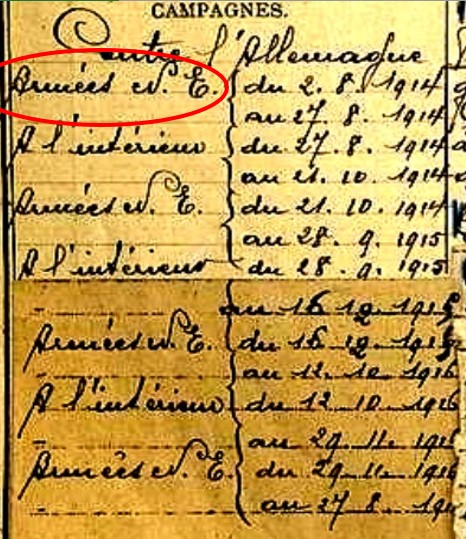 CAMPAGNES.
Contre l'Allemagne
Armées N. E. du 2. 8. 1914
au 27. 8. 1914
A l'intérieur du 27. 8. 1914
au 21. 10. 1914
Armées N. E. du 21. 10. 1914
au 28. 9. 1915
A l'intérieur du 28. 9. 1915
au 16 12 1915
Armées N. E. du 16 12 1915
au 12 10 1916
A l'intérieur du 12 10 1916
au 29 11 1916
Armées N. E. du 29 11 1916
au 27 8